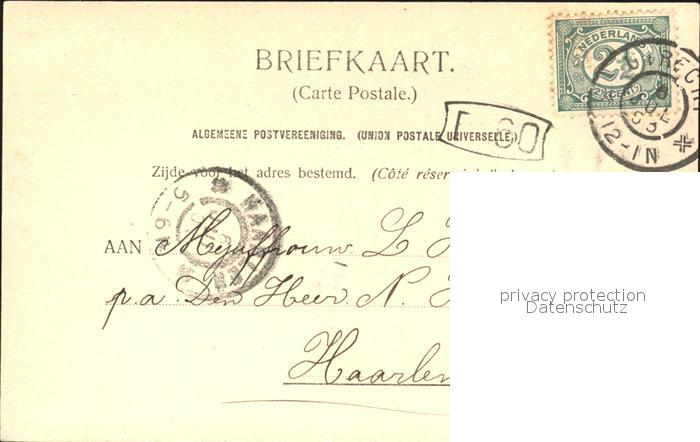 BRIEFKAART.
(Carte Postale.)
ALGEMEENE POSTVEREENIGING. (UNION POSTALE UNIVERSELLE)
Zijde voor het adres bestemd. (Côté réser
AAN Mejuffrouw L
p.a. Den Heer N.
Haarlem
NEDERLAND
2½
2½ CENT
UTRECHT
12-1N
HAARLEM
5-6N
60
privacy protection
Datenschutz